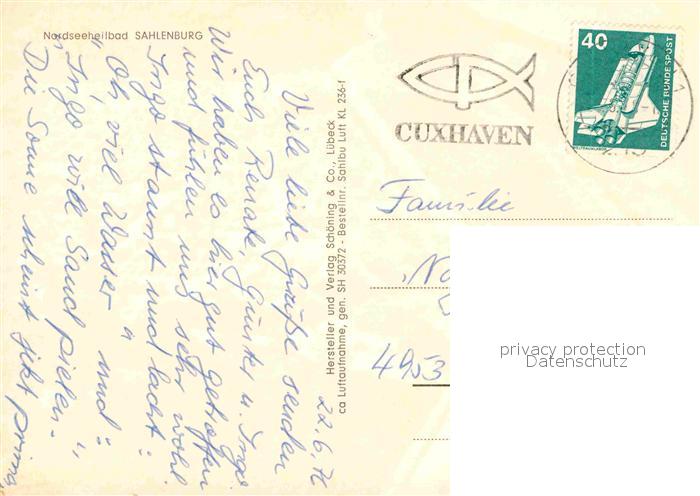 Nordseeheilbad SAHLENBURG
22.6.76
Viele liebe Grüße senden
Euch Renate, Günter u. Ingo
Wir haben es hier gut getroffen
und fühlen uns sehr wohl
Ingo staunt und lacht:
"Oh, viel Wasser" und:
"Ingo will Sand pielen."
Die Sonne scheint jetzt prima
Hersteller und Verlag Schöning & Co., Lübeck
ca Luftaufnahme, gen. SH 30372 - Bestellnr. Sahlbu Luft KL 236-f
CUXHAVEN
40
DEUTSCHE BUNDESPOST
WELTRAUMLABOR
Familie
4953
privacy protection
Datenschutz